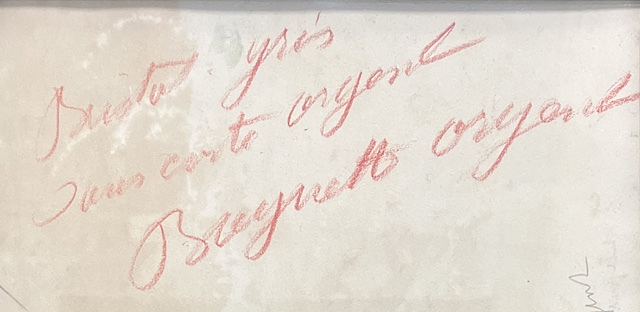 Bristol gris
sous carte argent
Baguette argent